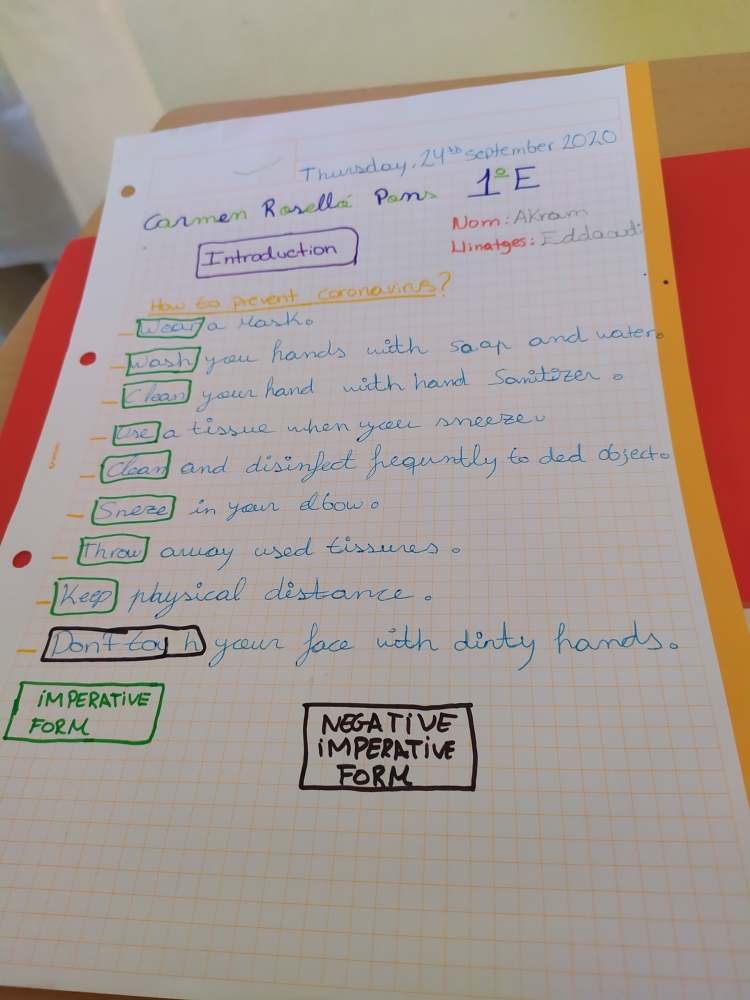 Thursday, 24th september 2020
Carmen Roselló Pons 1º E
Nom: AKram
Llinatges: Eddaoudi
Introduction
How to prevent coronavirus?
- Wear a Mask.
- Wash you hands with soap and water.
- Clean your hand with hand Sanitizer.
- Use a tissue when you sneeze.
- Clean and disinfect fequntly to ded object.
- Sneze in your elbow.
- Throw away used tissures.
- Keep physical distance.
- Don't toy h your face with dinty hands.
IMPERATIVE
FORM
NEGATIVE
IMPERATIVE
FORM